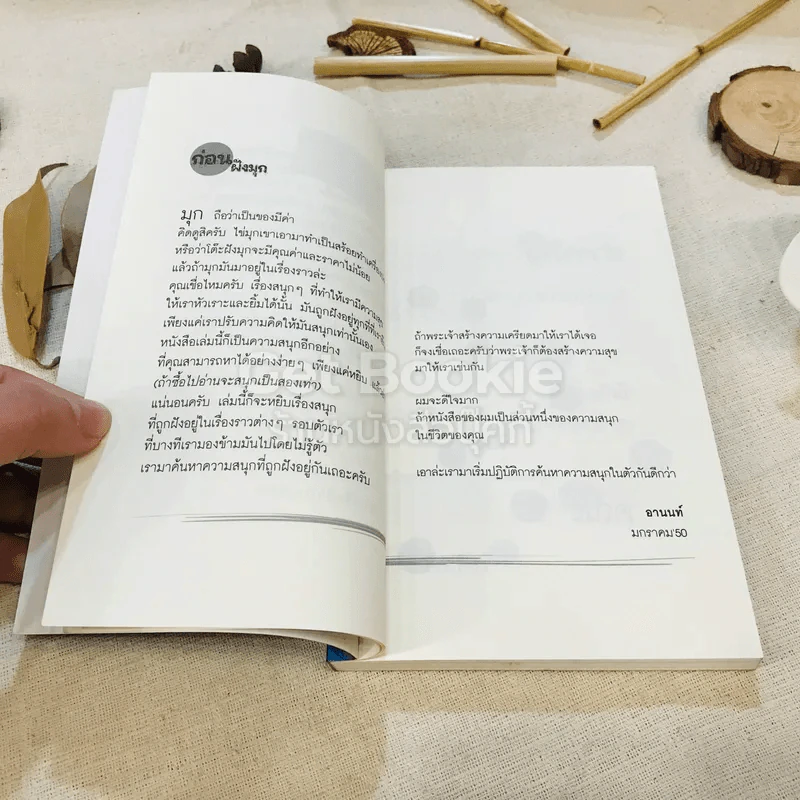 ก่อน
ฝังมุก
มุก ถือว่าเป็นของมีค่า
คิดดูสิครับ ไข่มุกเขาเอามาทำเป็นสร้อยทำเครื่อง
หรือว่าโต๊ะฝังมุกจะมีคุณค่าและราคาไม่น้อย
แล้วถ้ามุกมันมาอยู่ในเรื่องราวล่ะ
คุณเชื่อไหมครับ เรื่องสนุกๆ ที่ทำให้เรามีความสุข
ให้เราหัวเราะและยิ้มได้นั้น มันถูกฝังอยู่ทุกที่ที่เรา
เพียงแค่เราปรับความคิดให้มันสนุกเท่านั้นเอง
หนังสือเล่มนี้ก็เป็นความสนุกอีกอย่าง
ที่คุณสามารถหาได้อย่างง่ายๆ เพียงแค่หยิบ
(ถ้าซื้อไปอ่านจะสนุกเป็นสองเท่า)
แน่นอนครับ เล่มนี้ก็จะหยิบเรื่องสนุก
ที่ถูกฝังอยู่ในเรื่องราวต่างๆ รอบตัวเรา
ที่บางทีเรามองข้ามมันไปโดยไม่รู้ตัว
เรามาค้นหาความสนุกที่ถูกฝังอยู่กันเถอะครับ
ถ้าพระเจ้าสร้างความเครียดมาให้เราได้เจอ
ก็จงเชื่อเถอะครับว่าพระเจ้าก็ต้องสร้างความสุข
มาให้เราเช่นกัน
ผมจะดีใจมาก
ถ้าหนังสือของผมเป็นส่วนหนึ่งของความสนุก
ในชีวิตของคุณ
เอาล่ะเรามาเริ่มปฏิบัติการค้นหาความสนุกในตัวกันดีกว่า
อานนท์
มกราคม'50
Get Bookie